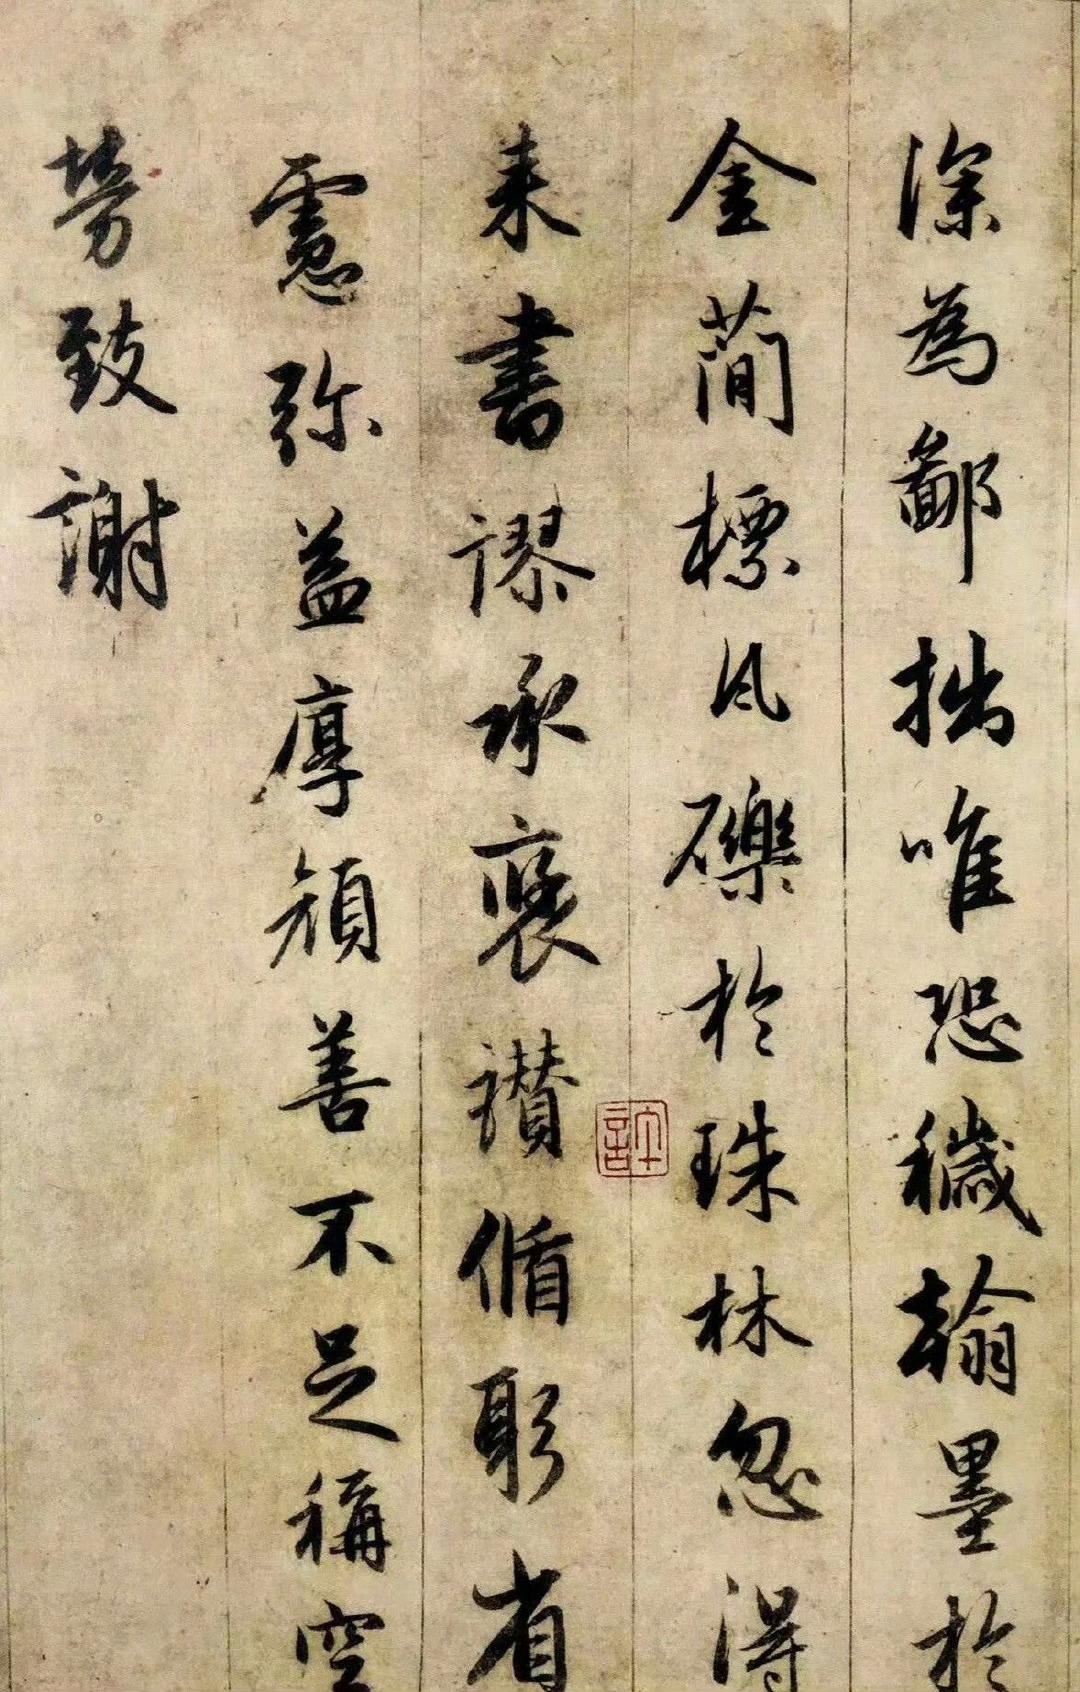 深為鄙拙唯恐穢翰墨於
金簡標瓦礫於珠林忽得
来書謬承褒讃循躬省
慮弥益厚顔善不足稱空
勞致謝
許